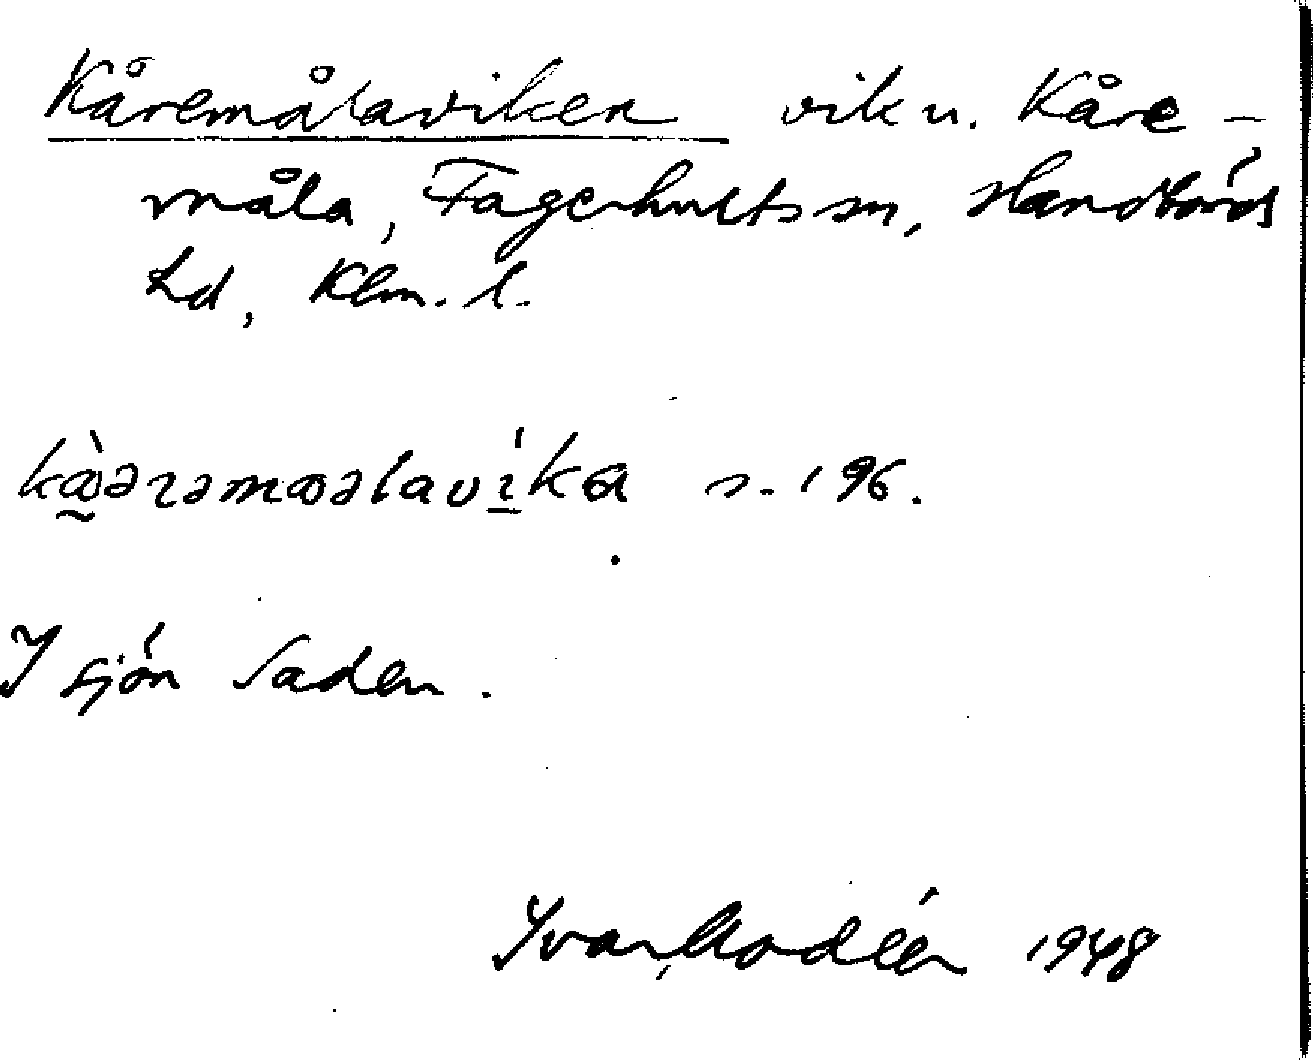 Kåremålaviken vik v. Kåre-
måla, Fagerhults sn, Handbörds
hd, Klm. l.
s. 196.
I sjön Saden.
Ivar Modéer 1948